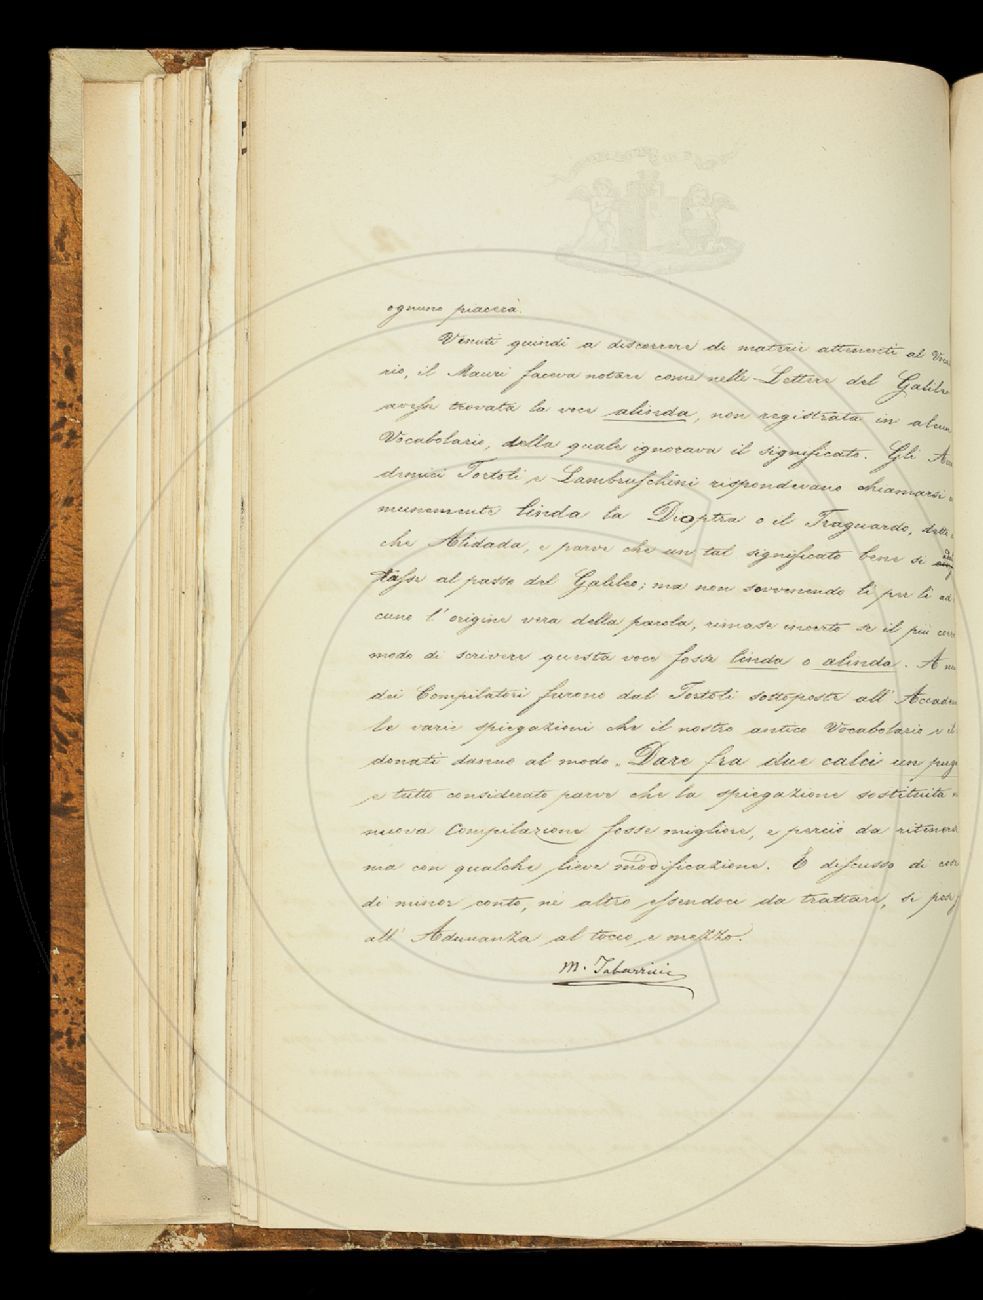 ognuno piacerà.
Venuti quindi a discorrere di materie attenenti al Voca
rio, il Mauri faceva notare come nelle Lettere del Galile
avesse trovata la voce alinda, non registrata in alcun
Vocabolario, della quale ignorava il significato. Gli Acca
demici Tortoli e Lambruschini rispondevano chiamarsi
munemente linda la Dioptra o il Traguardo, detta
che Alidada, e parve che un tal significato bene si
tasse al passo del Galileo; ma non sovvenendo lì per lì ad
cuno l'origine vera della parola, rimase incerto se il più corr
modo di scrivere questa voce fosse linda o alinda. A no
dei Compilatori furono dal Tortoli sottoposte all'Accadem
le varie spiegazioni che il nostro antico Vocabolario e i
donati danno al modo. Dare fra due calci un pug
e tutto considerato parve che la spiegazione sostituita
nuova Compilazione fosse migliore, e perciò da riteners
ma con qualche lieve modificazione. E discusso di cose
di minor conto, nè altro essendoci da trattare, si pose
all'Adunanza al tocco e mezzo.
M. Tabarrini